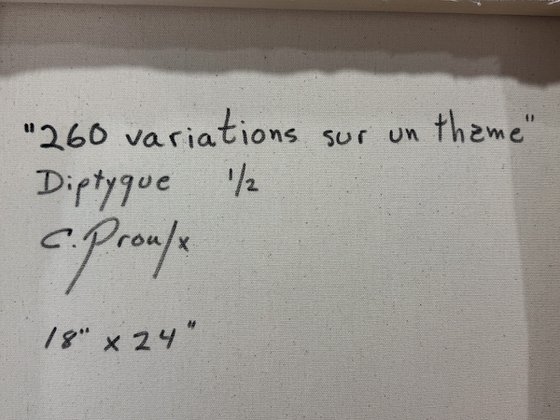 "260 variations sur un thème"
Diptyque 1/2
C. Proulx
18" x 24"